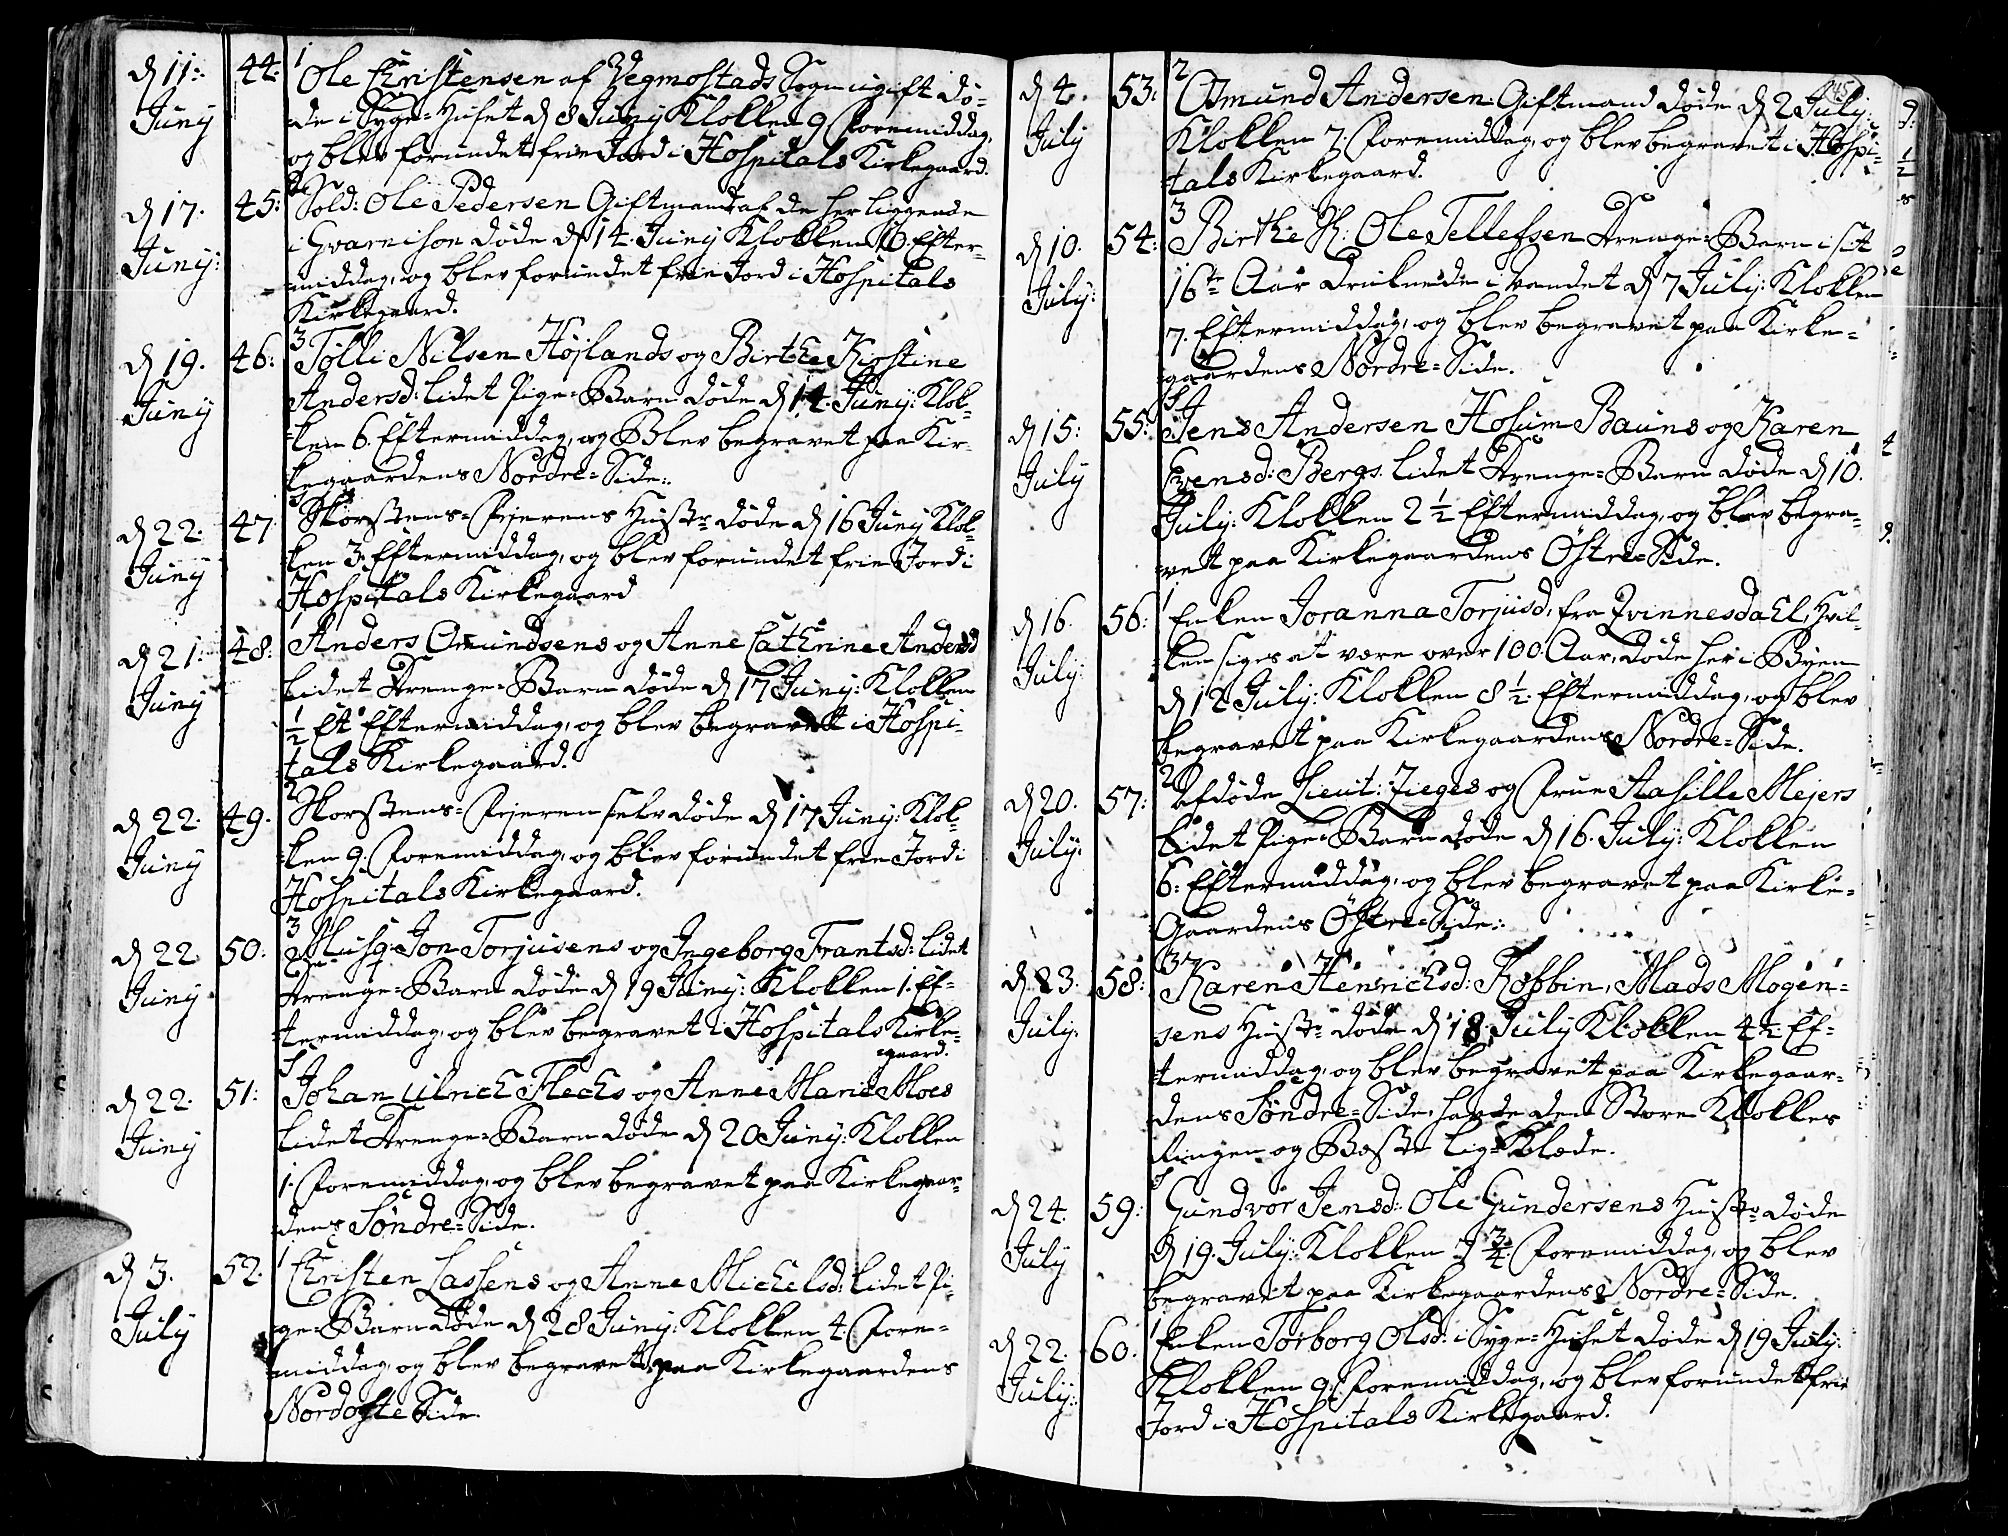 d 11: Juny 44: 1 Ole Christensen af Vegmostads Sogn ugift dø-
de i Syge-Huset d 8 Juny Klokken 9 Formiddag,
og blev forundet frie Jord i Hospitals Kirkegaard.
d 17. Juny: 45: 2 Sold: Ole Pedersen Giftmand af de her liggende
i Gvarnison døde d 14. Juny Klokken 10. Efter-
middag, og blev forundet frie Jord i Hospitals
Kirkegaard.
d 19. Juny 46: 3 Tølli Nilsen Højlands og Birthe Kirstine
Andersd: lidet Pige-Barn døde d 14. Juny: Klok-
ken 6. Eftermiddag, og Blev begravet paa Kir-
kegaardens Nordre-Side.
d 22. Juny 47 Skorstens-Fejerens Hustr døde d 16 Juny Klok-
ken 3. Eftermiddag, og blev forundet frie Jord i
Hospitals Kirkegaard
d 21: Juny 48: 1 Anders Omundsens og Anne Cathrine Andersd
lidet Drenge-Barn døde d 17 Juny: Klokken
1/2 Et Eftermiddag, og blev begravet i Hospi-
tals Kirkegaard.
d 22. Juny 49. 2 Skorstens-Fejeren selv døde d 17 Juny: Klok-
ken 9. Formiddag, og blev forundet frie Jord i
Hospitals Kirkegaard.
d 22 Juny 50: 3 Musq: Jon Torjusens og Ingeborg Frantsd: lidet
Drenge-Barn døde d 19 Juny: Klokken 1. Ef-
termiddag, og blev begravet i Hospitals Kirke-
gaard.
d 22. Juny 51: Johan Ulrich Flechs og Anne Marie Moes
lidet Drenge-Barn døde d 20 Juny: Klokken
1. Formiddag, og blev begravet paa Kirkegaar-
dens Søndre-Side.
d 3. July 52. 1 Christen Lassens og Anne Michelsd: lidet Pi-
ge-Barn døde d 28 Juny: Klokken 4. For-
middag, og blev begravet paa Kirkegaardens
Nordøste Side.
145
d 4. July 53: 2 Osmund Andersen Giftmand døde d 2 July:
Klokken 7. Formiddag, og blev begravet i Hospi-
tals Kirkegaard.
d 10. July: 54: 3 Birthe Ole Tellefsen Drenge-Barn i sit
16de Aar druknede i Vandet d 7 July: Klokken
7. Eftermiddag, og blev begravet paa Kirke-
gaardens Nordre-Side.
d 15: July 55: Jens Andersen Hosum Bauns og Karen
Svensd: Bergs lidet Drenge-Barn døde d 10.
July: Klokken 2 1/2 Eftermiddag, og blev begra-
vet paa Kirkegaardens Østre-Side.
d 16. July: 56: 1 Enken Joranna Torjusd, fra Qvinnesdahl, Hvil-
ken siges at være over 100 Aar, døde her i Byen
d 12 July: Klokken 8 1/2. Eftermiddag, og blev
begravet paa Kirkegaardens Nordre-Side.
d 20. July: 57: 2 Afdøde Lieut: Zieges og Frue Aasille Mejers
lidet Pige-Barn døde d 16. July: Klokken
6: Eftermiddag, og blev begravet paa Kirke-
Gaardens Østre-Side.
d 23. July: 58: 3 Karen Henrichsd: Robbin, Mads Mogen-
sens Hustr døde d 18. July Klokken 4 1/2: Ef-
termiddag, og blev begravet paa Kirkegaar-
dens Søndre-Side, havde den Store Klokkes
Ringen og Beste Lig-Klæde.
d 24. July 59: Gundvor Jensd: Ole Gundersens Hustr døde
d 19. July: Klokken 3/4. Formiddag, og blev
begravet paa Kirkegaardens Nordre-Side.
d 22. July: 60. 1 Enken Torborg Olsd: i Syge-Huset døde d 19 July:
Klokken 9. Formiddag, og blev forundet frie
Jord i Hospitals Kirkegaard.